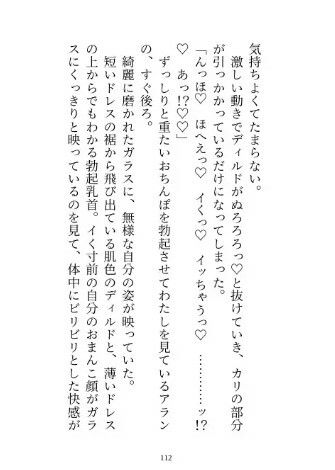 気持ちよくてたまらない。
　激しい動きでディルドがぬろろろっ♡と抜けていき、カリの部分
が引っかかっているだけになってしまった。
「んっほ♡　ほへえっ♡　イくっ♡　イッちゃうっ♡　…………ッ!?
♡　あっ!?♡♡」
　ずっしりと重たいおちんぽを勃起させてわたしを見ているアラン
の、すぐ後ろ。
　綺麗に磨かれたガラスに、無様な自分の姿が映っていた。
　短いドレスの裾から飛び出ている肌色のディルドと、薄いドレス
の上からでもわかる勃起乳首。イく寸前の自分のおまんこ顔がガラ
スにくっきりと映っているのを見て、体中にビリビリとした快感が
112